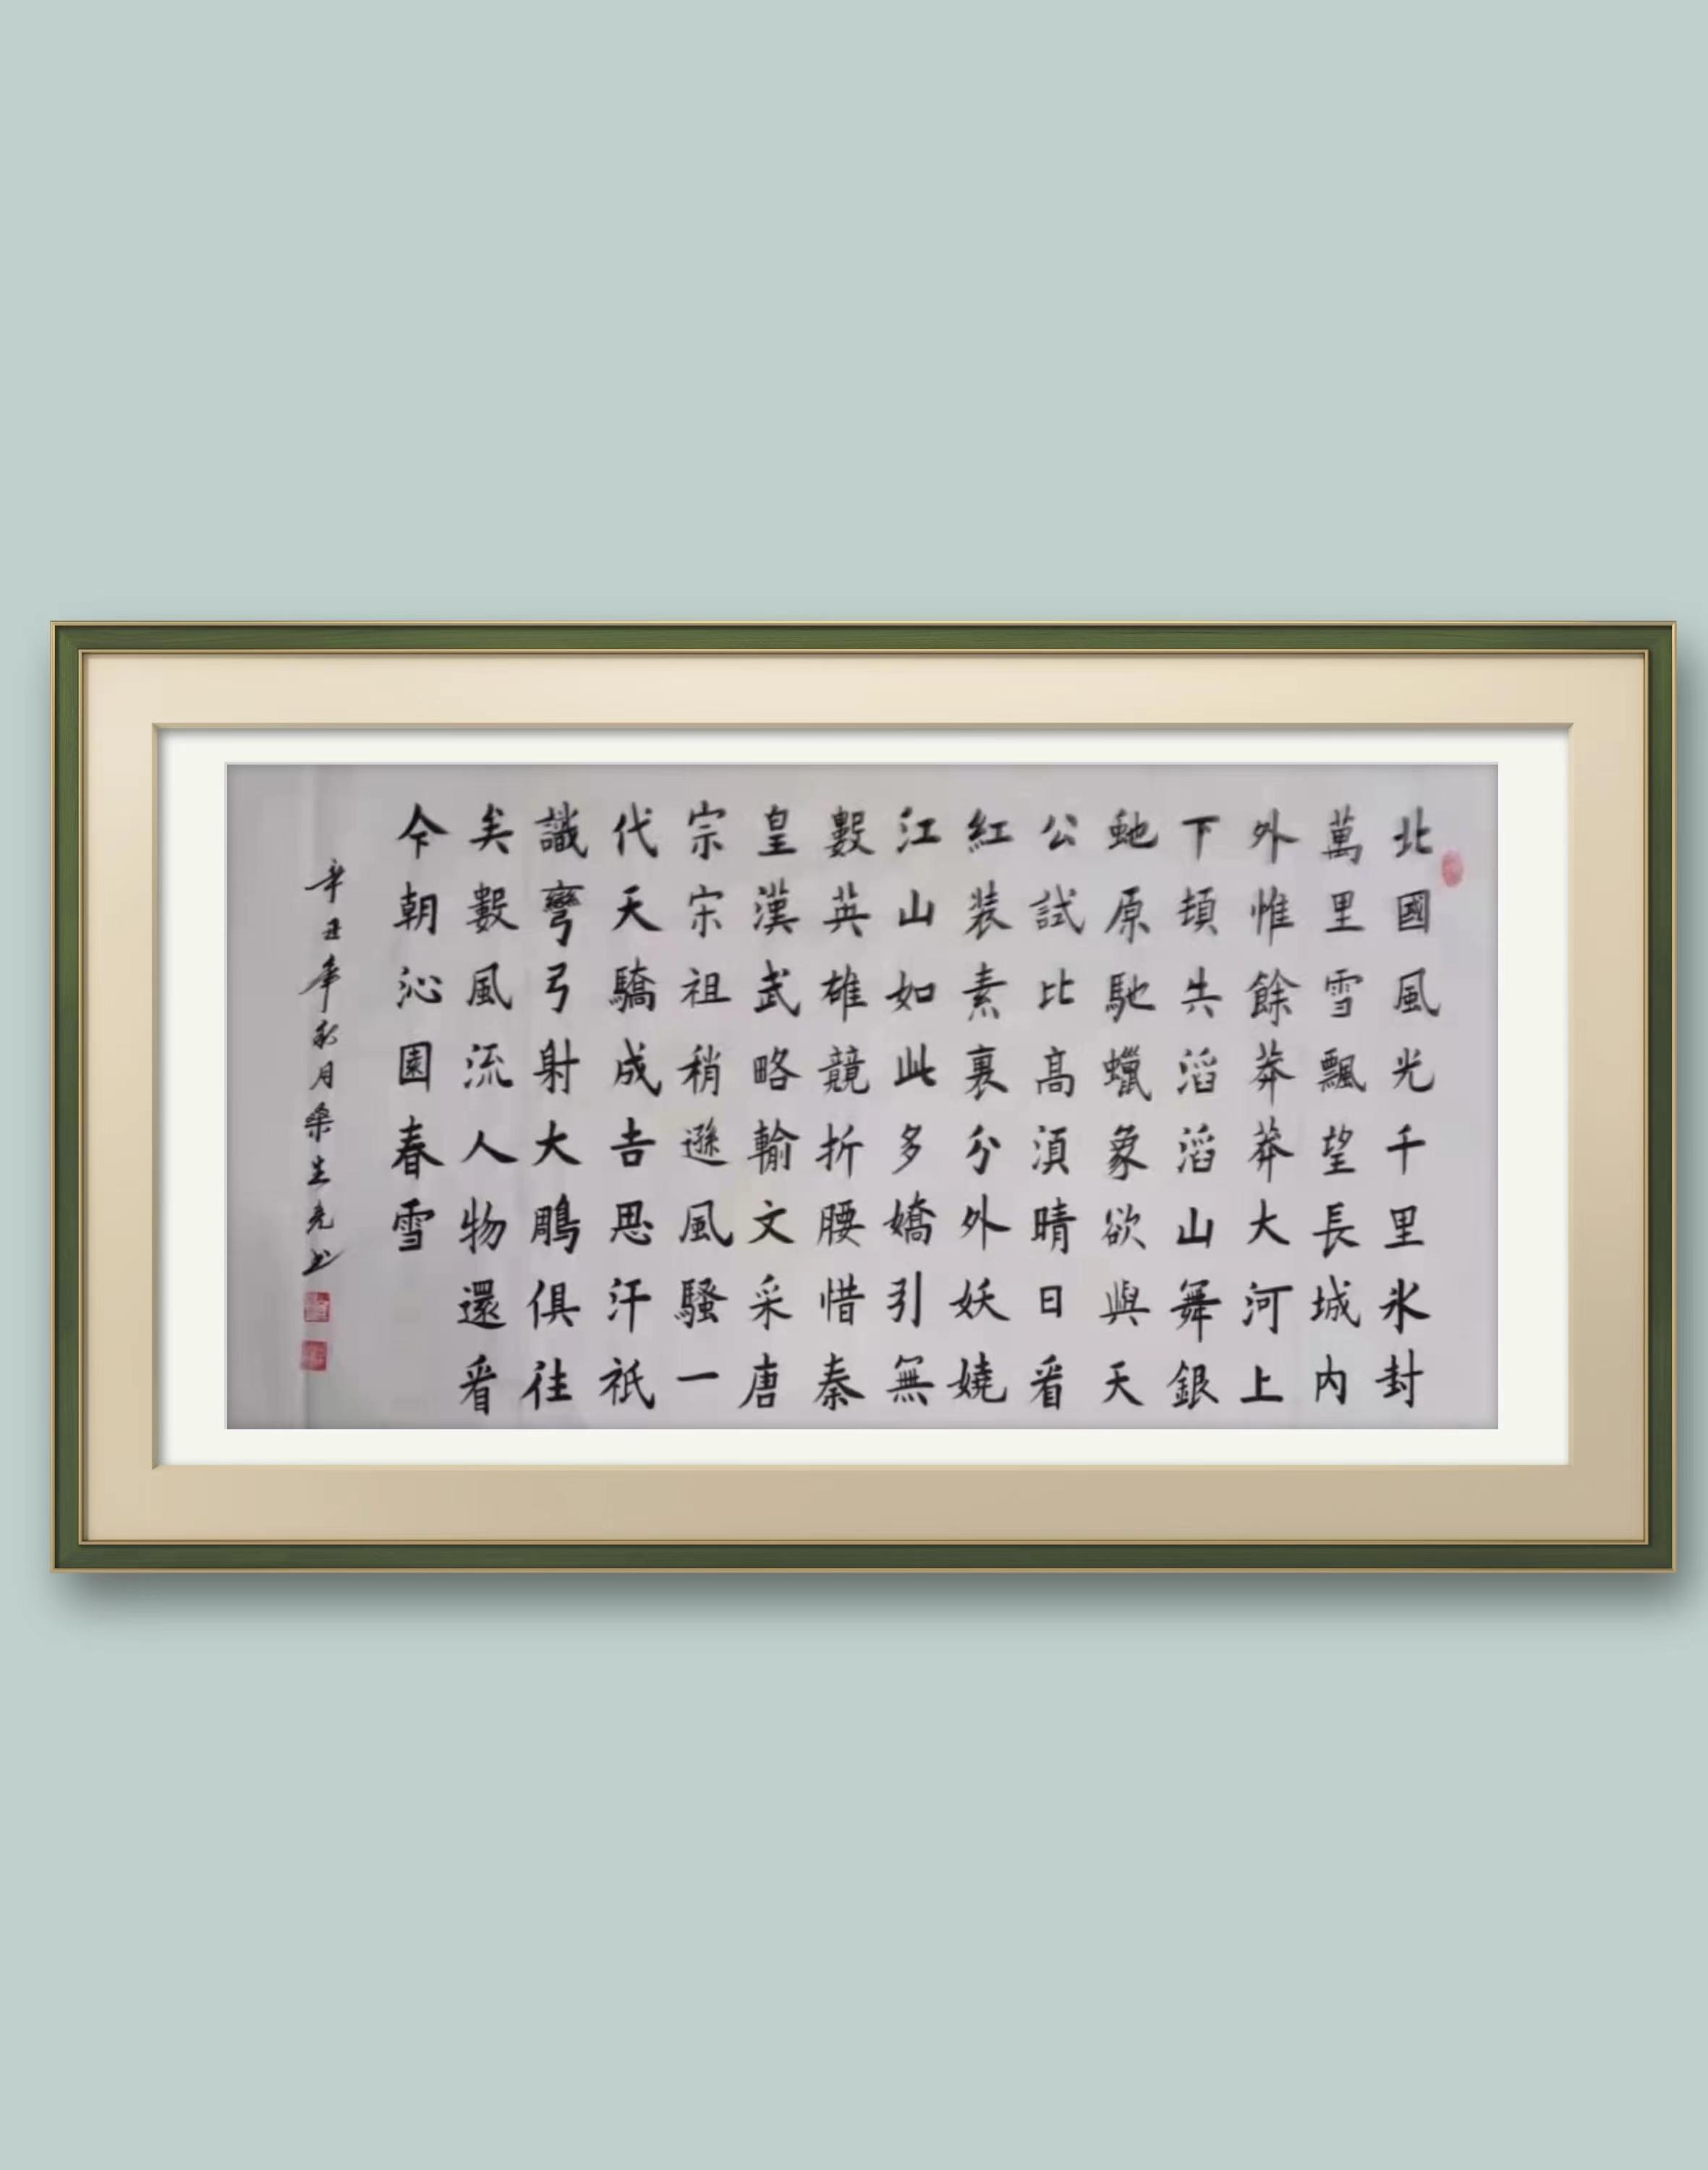 北國風光千里氷封
萬里雪飄望長城内
外惟餘莽莽大河上
下頓失滔滔山舞銀
虵原馳蠟象欲與天
公試比高須晴日看
紅装素裹分外妖嬈
江山如此多嬌引無
數英雄競折腰惜秦
皇漢武略輸文采唐
宗宋祖稍遜風騷一
代天驕成吉思汗祇
識彎弓射大鵰俱往
矣數風流人物還看
今朝沁園春雪
辛丑年秋月生亮书